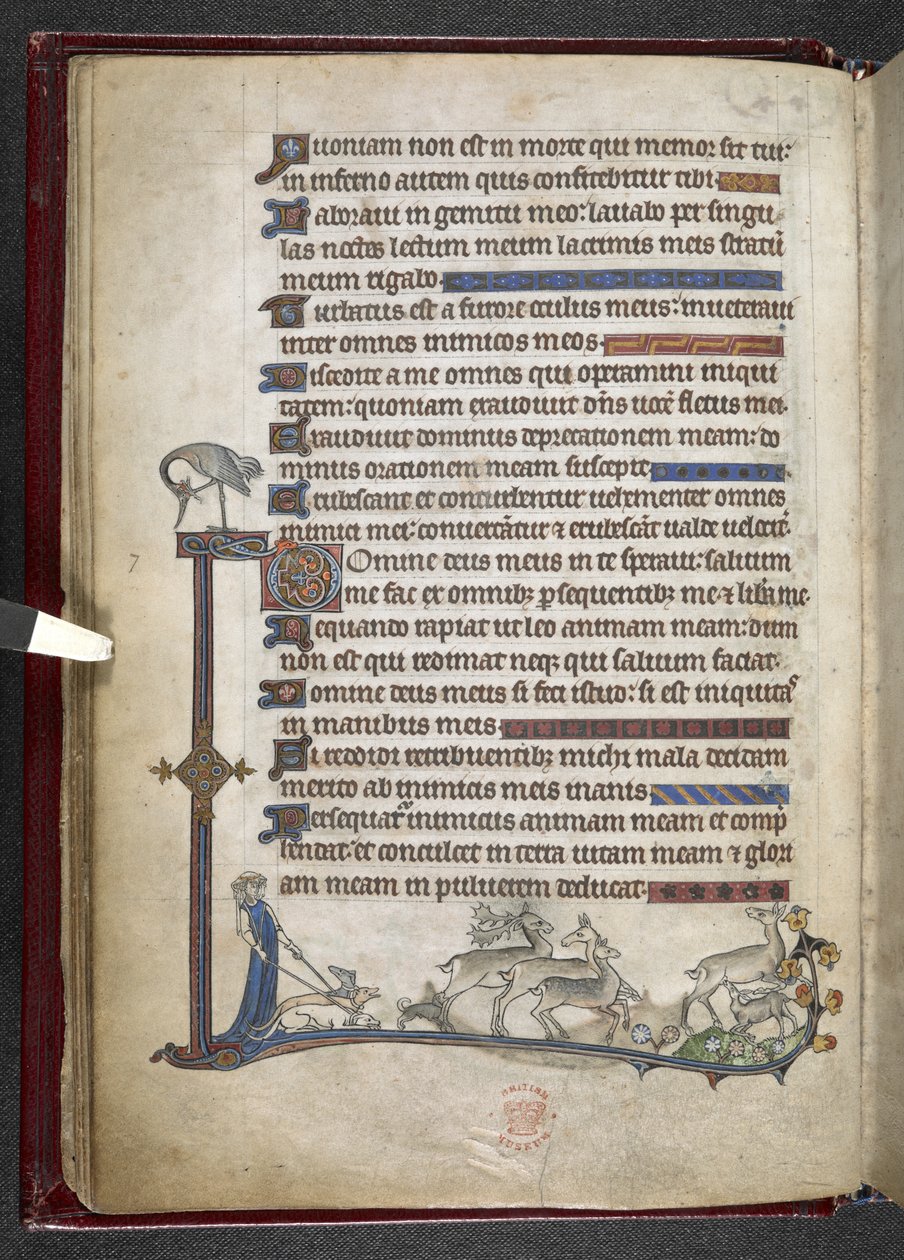 Quoniam non est in morte qui memor sit tui:
in inferno autem quis confitebitur tibi.
Laboraui in gemitu meo: lauabo per singu
las noctes lectum meum lacrimis meis stratū
meum rigabo.
Turbatus est a furore oculus meus: inueteraui
inter omnes inimicos meos.
Discedite a me omnes qui operamini iniqui
tatem: quoniam exaudiuit dñs uocē fletus mei.
Exaudiuit dominus deprecationem meam: do
minus orationem meam suscepit.
Erubescant et conturbentur uehementer omnes
inimici mei: conuertātur ⁊ erubescāt ualde uelocit̄.
Domine deus meus in te speraui: saluum
me fac ex omnibꝫ ꝑsequentibꝫ me ⁊ lib̄a me.
Nequando rapiat ut leo animam meam: dum
non est qui redimat neqꝫ qui saluum faciat.
Domine deus meus si feci istud: si est iniquitas
in manibus meis.
Si reddidi retribuentibꝫ michi mala decidam
merito ab inimicis meis inanis.
Persequat᷑ inimicus animam meam et comp̄
hendat: et conculcet in terra uitam meam ⁊ glori
am meam in puluerem deducat.
7
BRITISH
MUSEUM